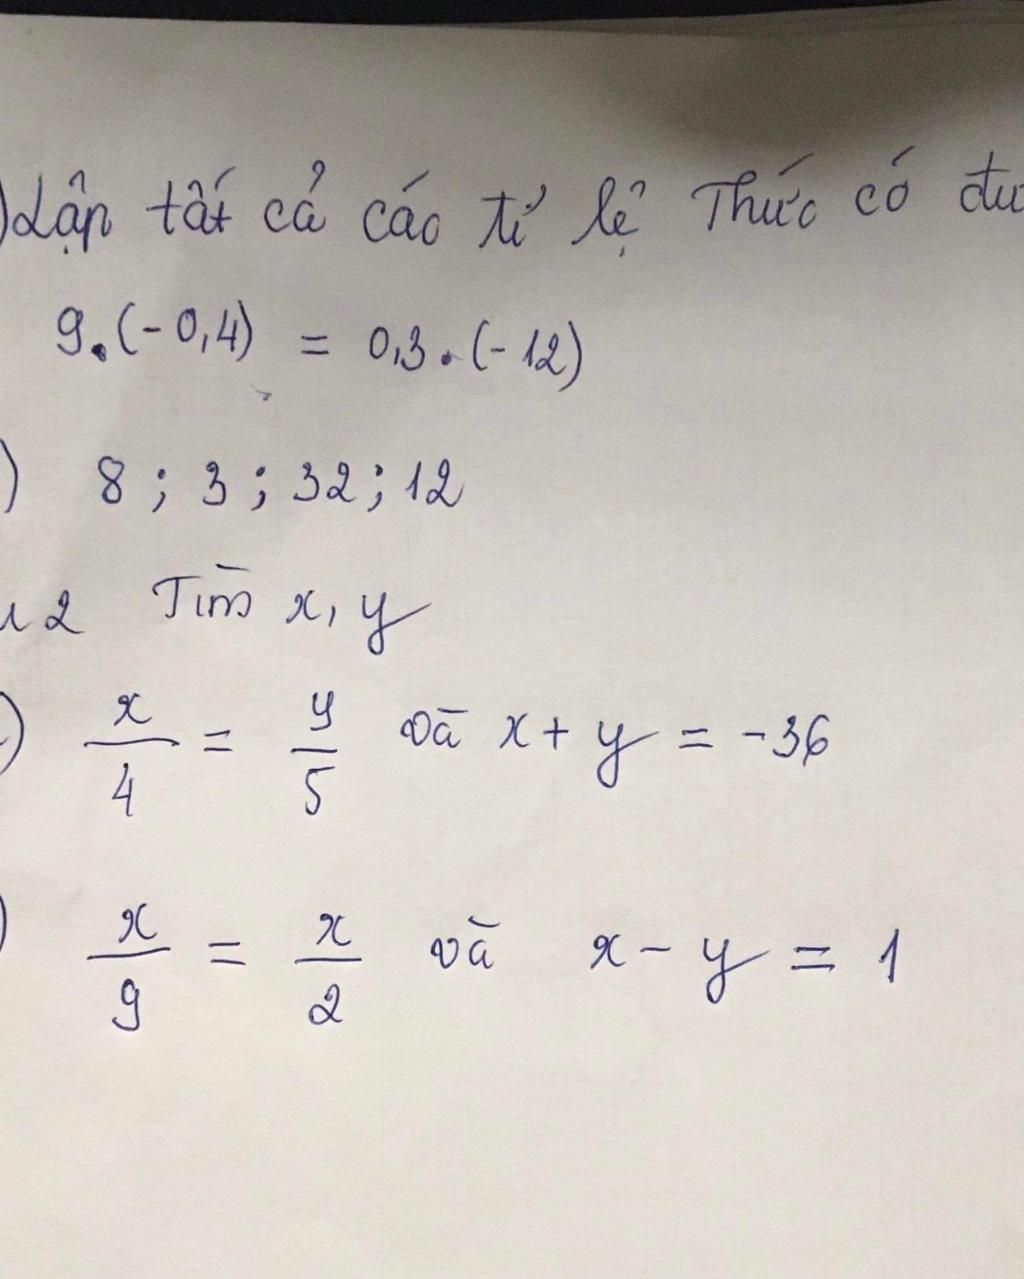 ) Lập tất cả các tỉ lệ thức có đư
9.(-0,4) = 0,3.(-12)
) 8 ; 3 ; 32 ; 12
2 Tìm x, y
) x/4 = y/5 và x + y = -36
) x/9 = x/2 và x - y = 1